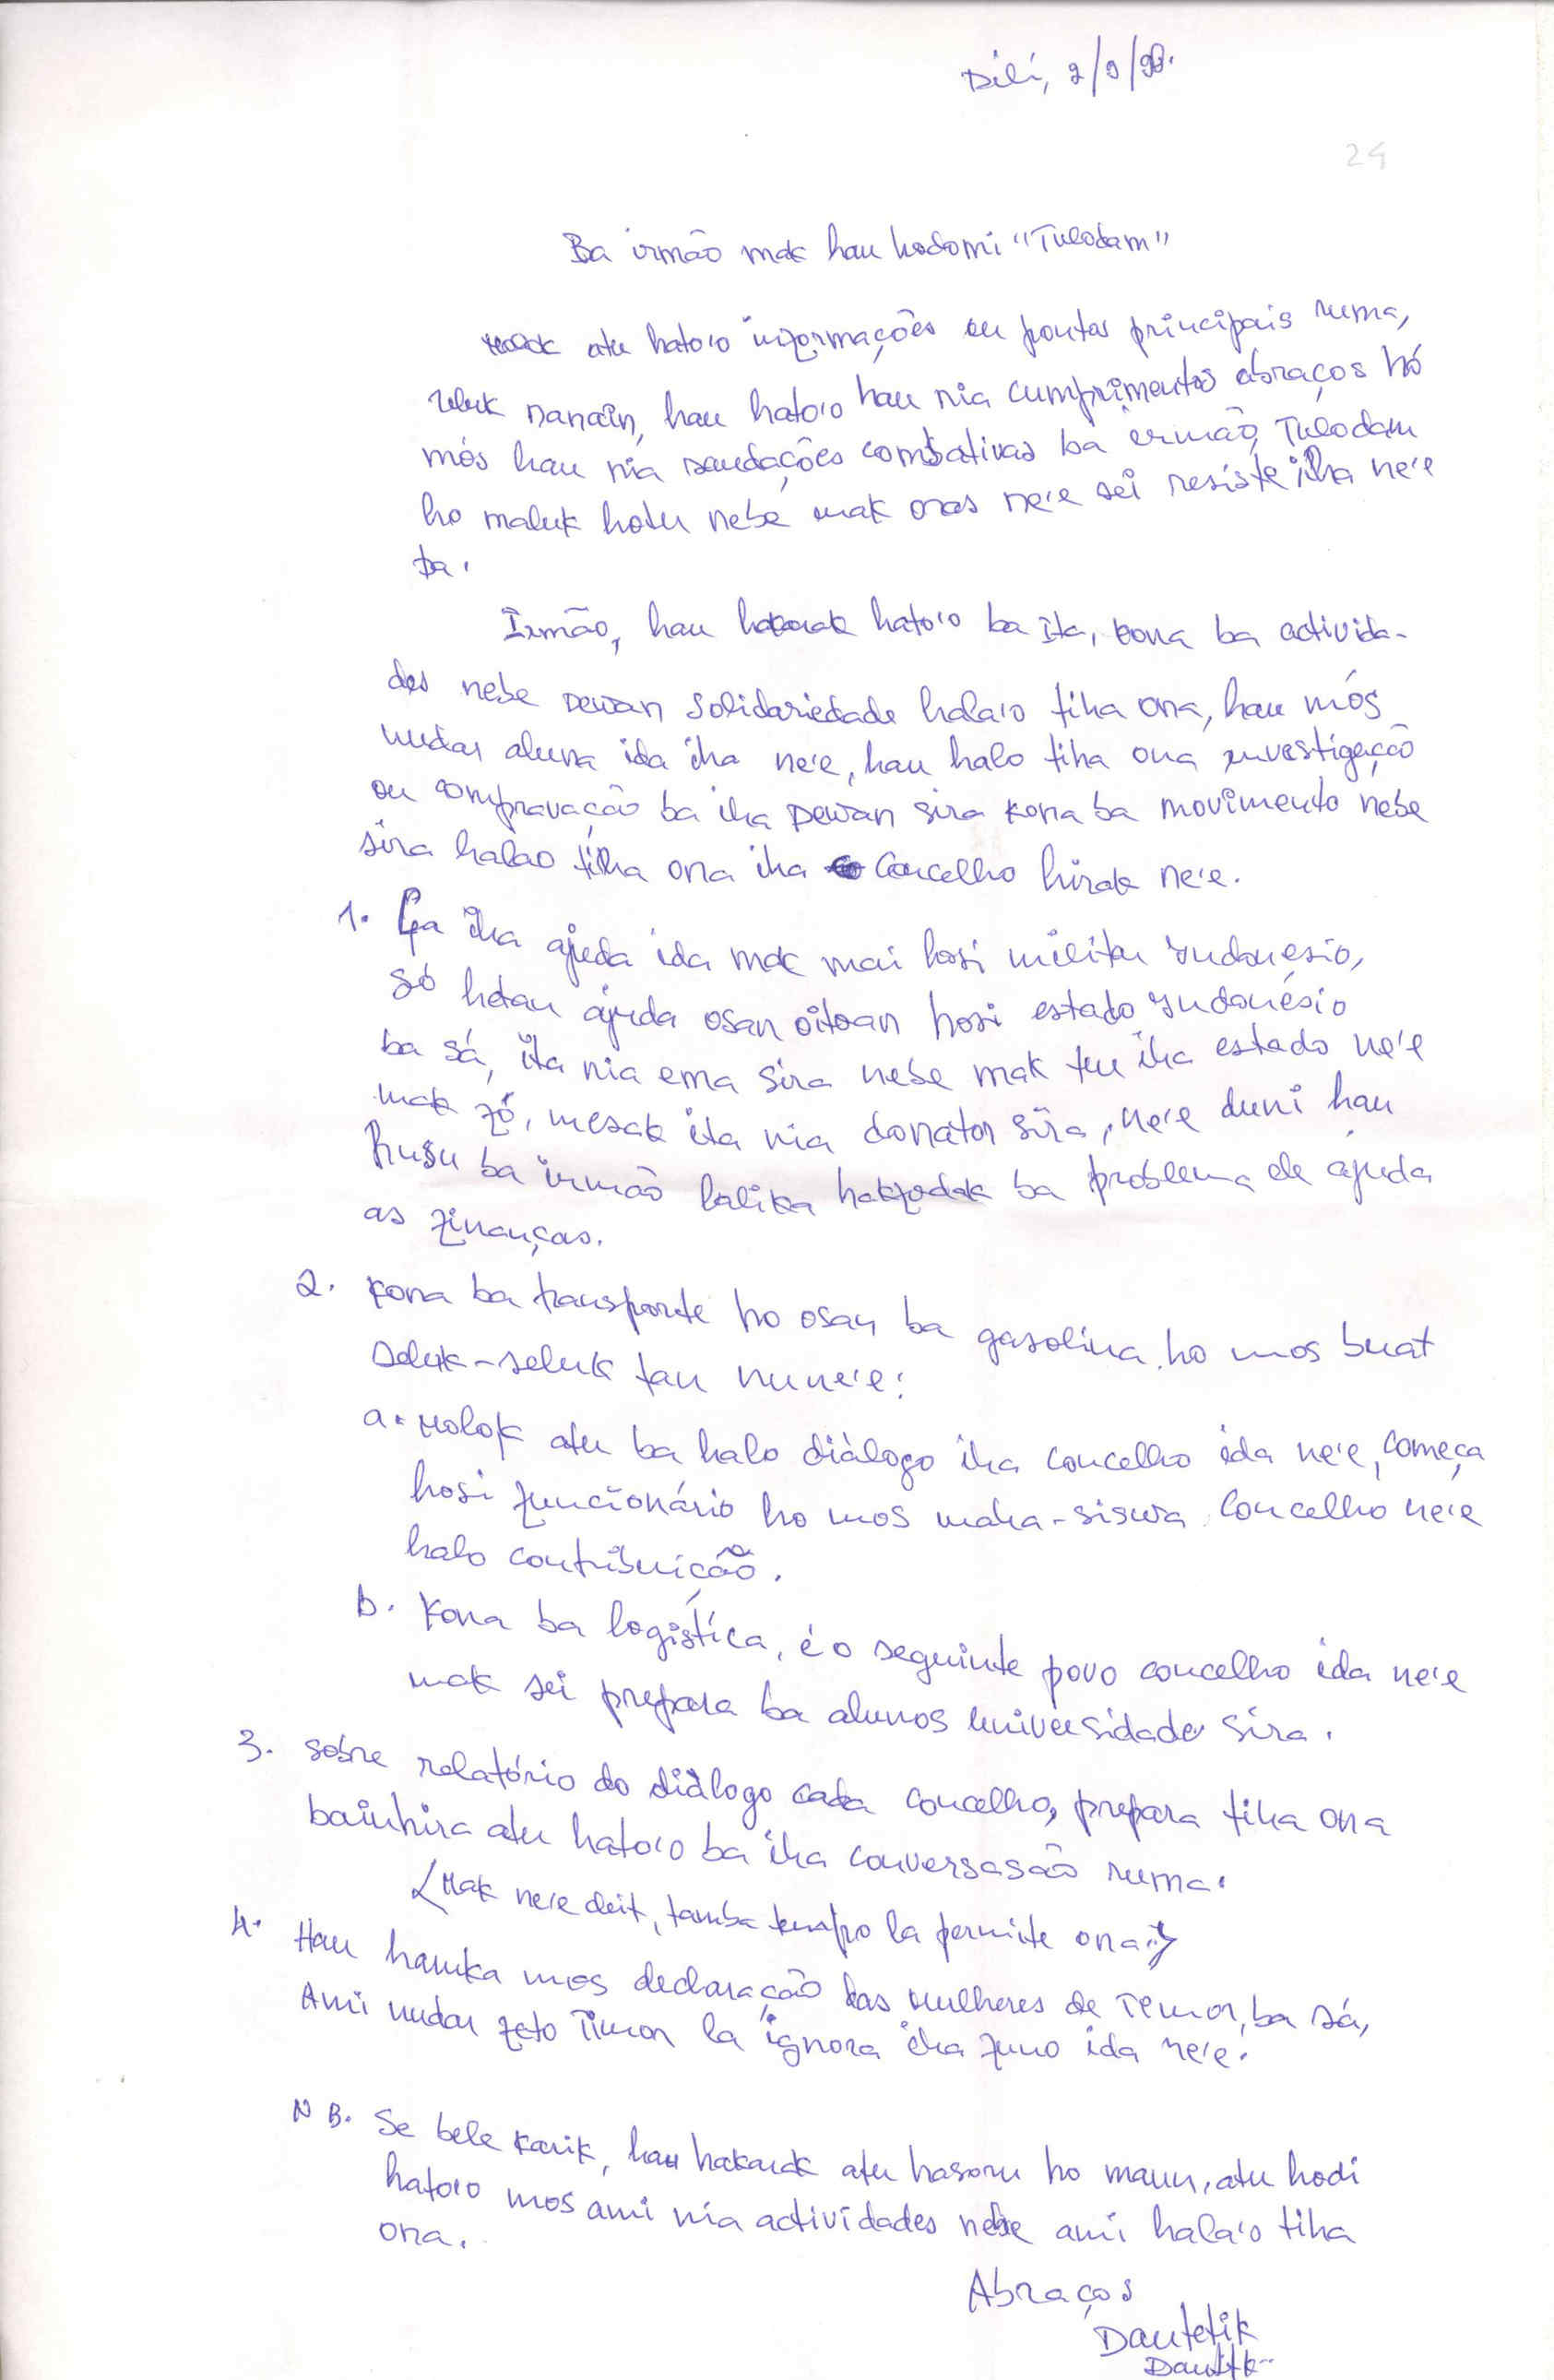 Dili, 2/9/98.
24
Ba irmão mak hau hadomi "Tulodam"
Molok atu hato'o informações ou pontos principais ruma,
uluk nanain, hau hato'o hau nia cumprimentos abraços hó
mós hau nia saudações combativas ba irmão Tulodam
ho maluk hotu nebé mak oras ne'e sei resiste iha ne'e
ba.
Irmão, hau hakarak hato'o ba ita, kona ba activida-
des nebe Dewan Solidariedade hala'o tiha ona, hau mós
nudar aluna ida iha ne'e, hau halo tiha ona investigação
ou compravação ba iha Dewan sira kona ba movimento nebe
sira halao tiha ona iha Concelho hirak ne'e.
1. La iha ajuda ida mak mai hosi militar Indonésio,
só hetan ajuda osan oitoan hosi estado Indonésio
ba sá, ita nia ema sira nebe mak tuu iha estado ne'e
mak fó, mesak ita nia donator sira, ne'e duni hau
husu ba irmão lalika hakfodak ba problema de ajuda
as finanças.
2. Kona ba transporte ho osan ba gasolina ho mos buat
seluk-seluk tan nune'e:
a. Molok atu ba halo diàlogo iha concelho ida ne'e, começa
hosi funcionário ho mos maha-siswa Concelho ne'e
halo contribuição.
b. Kona ba logística, é o seguinte povo concelho ida ne'e
mak sei prepara ba alunos universidade sira.
3. sobre relatório do diàlogo cada concelho, prepara tiha ona
bainhira atu hato'o ba iha conversasão ruma.
(Mak ne'e deit, tamba tempo la permite ona.)
4. Hau haruka mos declaração das mulheres de Timor, ba sá,
Ami nudar feto Timor la ignora iha funo ida ne'e.
NB. Se bele karik, hau hakarak atu hasoru ho maun, atu hodi
hato'o mos ami nia actividades nebe ami hala'o tiha
ona.
Abraços
Dautetik